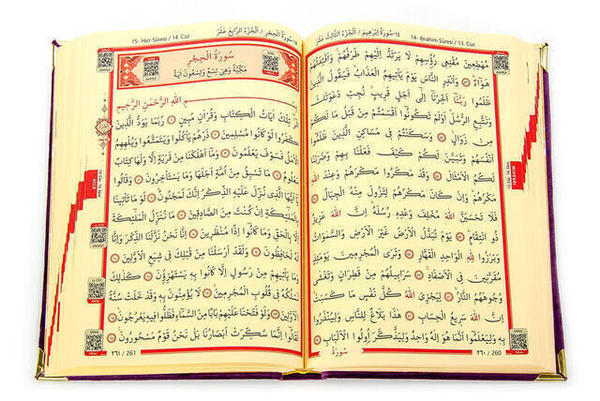 14- İbrahim Sûresi / 13. Cüz
١٤-سُورَةُ اِبْرٰهِيمَ / اَلْجُزْءُ الثَّالِثَ عَشَرَ
مُهْطِعِينَ مُقْنِعِى رُؤُسِهِمْ لَا يَرْتَدُّ اِلَيْهِمْ طَرْفُهُمْ وَاَفْـِٔدَتُهُمْ
هَوَاءٌ وَاَنْذِرِ النَّاسَ يَوْمَ يَأْتِيهِمُ الْعَذَابُ فَيَقُولُ الَّذِينَ
ظَلَمُوا رَبَّنَا اَخِّرْنَا اِلٰى اَجَلٍ قَرِيبٍ نُجِبْ دَعْوَتَكَ
وَنَتَّبِعِ الرُّسُلَ اَوَلَمْ تَكُونُوا اَقْسَمْتُمْ مِنْ قَبْلُ مَا لَكُمْ
مِنْ زَوَالٍ وَسَكَنْتُمْ فِى مَسَاكِنِ الَّذِينَ ظَلَمُوا
اَنْفُسَهُمْ وَتَبَيَّنَ لَكُمْ كَيْفَ فَعَلْنَا بِهِمْ وَضَرَبْنَا
لَكُمُ الْاَمْثَالَ وَقَدْ مَكَرُوا مَكْرَهُمْ وَعِنْدَ اللّٰهِ
مَكْرُهُمْ وَاِنْ كَانَ مَكْرُهُمْ لِتَزُولَ مِنْهُ الْجِبَالُ
فَلَا تَحْسَبَنَّ اللّٰهَ مُخْلِفَ وَعْدِهِ رُسُلَهُ اِنَّ اللّٰهَ عَزِيزٌ
ذُو انْتِقَامٍ يَوْمَ تُبَدَّلُ الْاَرْضُ غَيْرَ الْاَرْضِ وَالسَّمٰوَاتُ
وَبَرَزُوا لِلّٰهِ الْوَاحِدِ الْقَهَّارِ وَتَرَى الْمُجْرِمِينَ يَوْمَئِذٍ
مُقَرَّنِينَ فِى الْاَصْفَادِ سَرَابِيلُهُمْ مِنْ قَطِرَانٍ وَتَغْشٰى
وُجُوهَهُمُ النَّارُ لِيَجْزِىَ اللّٰهُ كُلَّ نَفْسٍ مَا كَسَبَتْ
اِنَّ اللّٰهَ سَرِيعُ الْحِسَابِ هٰذَا بَلَاغٌ لِلنَّاسِ وَلِيُنْذَرُوا
بِهِ وَلِيَعْلَمُوا اَنَّمَا هُوَ اِلٰهٌ وَاحِدٌ وَلِيَذَّكَّرَ اُولُوا الْاَلْبَابِ
سورة
٢٦٠ / 260
15- Hicr Sûresi / 14. Cüz
١٥-سُورَةُ الْحِجْرِ / اَلْجُزْءُ الرَّابِعَ عَشَرَ
سُورَةُ الْحِجْرِ
مَكِّيَّةٌ وَهِىَ تِسْعٌ وَتِسْعُونَ اٰيَةً
بِسْمِ اللّٰهِ الرَّحْمٰنِ الرَّحِيمِ
الٓرٰ تِلْكَ اٰيَاتُ الْكِتَابِ وَقُرْاٰنٍ مُبِينٍ رُبَمَا يَوَدُّ الَّذِينَ
كَفَرُوا لَوْ كَانُوا مُسْلِمِينَ ذَرْهُمْ يَأْكُلُوا وَيَتَمَتَّعُوا وَيُلْهِهِمُ
الْاَمَلُ فَسَوْفَ يَعْلَمُونَ وَمَا اَهْلَكْنَا مِنْ قَرْيَةٍ اِلَّا وَلَهَا كِتَابٌ
مَعْلُومٌ مَا تَسْبِقُ مِنْ اُمَّةٍ اَجَلَهَا وَمَا يَسْتَأْخِرُونَ وَقَالُوا
يَا اَيُّهَا الَّذِى نُزِّلَ عَلَيْهِ الذِّكْرُ اِنَّكَ لَمَجْنُونٌ لَوْ مَا تَأْتِينَا
بِالْمَلٰئِكَةِ اِنْ كُنْتَ مِنَ الصَّادِقِينَ مَا نُنَزِّلُ الْمَلٰئِكَةَ
اِلَّا بِالْحَقِّ وَمَا كَانُوا اِذًا مُنْظَرِينَ اِنَّا نَحْنُ نَزَّلْنَا الذِّكْرَ وَاِنَّا
لَهُ لَحَافِظُونَ وَلَقَدْ اَرْسَلْنَا مِنْ قَبْلِكَ فِى شِيَعِ الْاَوَّلِينَ
وَمَا يَأْتِيهِمْ مِنْ رَسُولٍ اِلَّا كَانُوا بِهِ يَسْتَهْزِؤُنَ كَذٰلِكَ
نَسْلُكُهُ فِى قُلُوبِ الْمُجْرِمِينَ لَا يُؤْمِنُونَ بِهِ وَقَدْ خَلَتْ سُنَّةُ
الْاَوَّلِينَ وَلَوْ فَتَحْنَا عَلَيْهِمْ بَابًا مِنَ السَّمَاءِ فَظَلُّوا فِيهِ يَعْرُجُونَ
لَقَالُوا اِنَّمَا سُكِّرَتْ اَبْصَارُنَا بَلْ نَحْنُ قَوْمٌ مَسْحُورُونَ
٢٦١ / 261